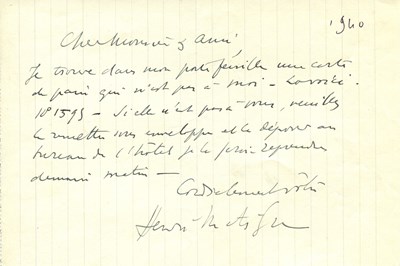 1940
Cher Monsieur & Ami,
Je trouve dans mon portefeuille une carte
de pain qui n'est pas à moi – La voici.
N° 1595 – Si elle n'est pas à vous, veuillez
la remettre sous enveloppe et la déposer au
bureau de l'hôtel je la ferai reprendre
demain matin –
Cordialement vôtre
Henri Matisse